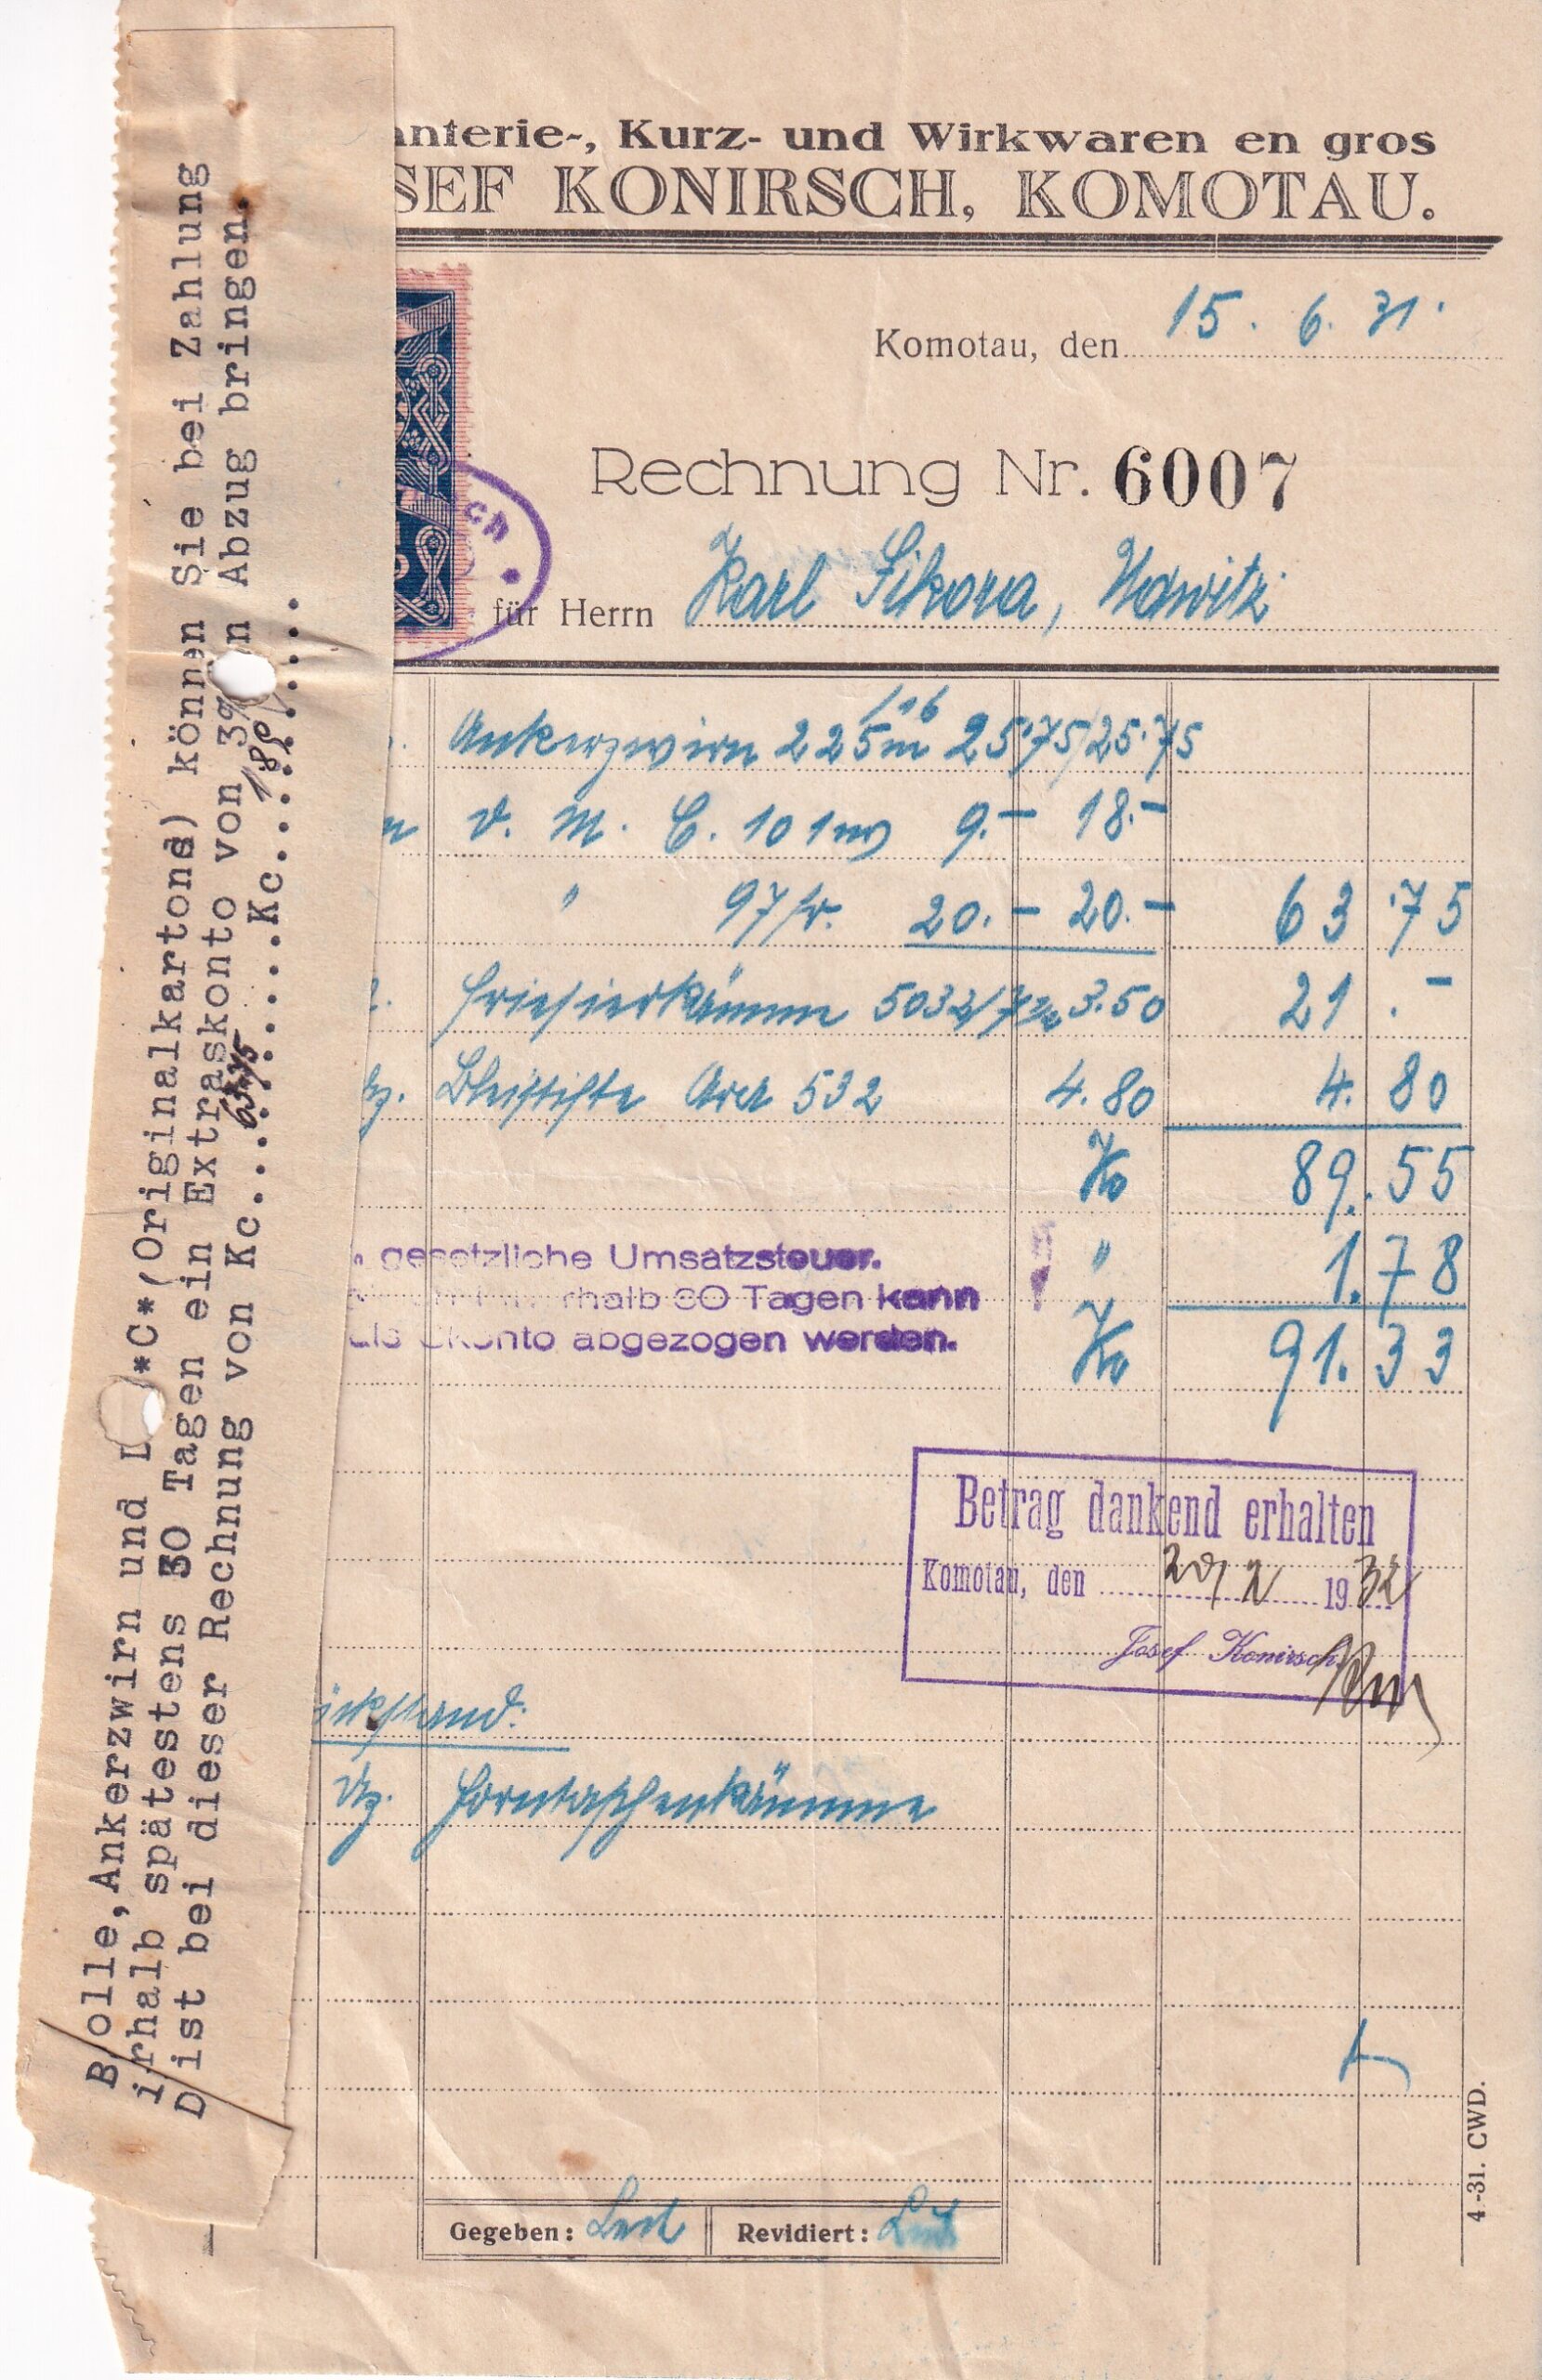 anterie-, Kurz- und Wirkwaren en gros
SEF KONIRSCH, KOMOTAU.
Komotau, den 15. 6. 31.
Rechnung Nr. 6007
ch
für Herrn Karl Sikora,
Ankerzwirn 225m 25.75 25.75
D. M. C. 101 9.- 18.-
" 97 20.- 20.- 63.75
Frisierkämme 5032/7 3.50 21.-
Dz. Bleistifte 532 4.80 4.80
Kč 89.55
gesetzliche Umsatzsteuer. " 1.78
rhalb 30 Tagen kann
als Skonto abgezogen werden. Kč 91.33
Betrag dankend erhalten
Komotau, den 1932
Josef Konirsch
ückstand:
Dz. Horntaschenkämme
Gegeben: Revidiert:
4-31. CWD.
B olle, Ankerzwirn und D*C*(Originalkartons) können Sie bei Zahlung
i rhalb spätestens 30 Tagen ein Extraskonto von 3% n Abzug bringen.
D ist bei dieser Rechnung von Kc....63.75......Kc...